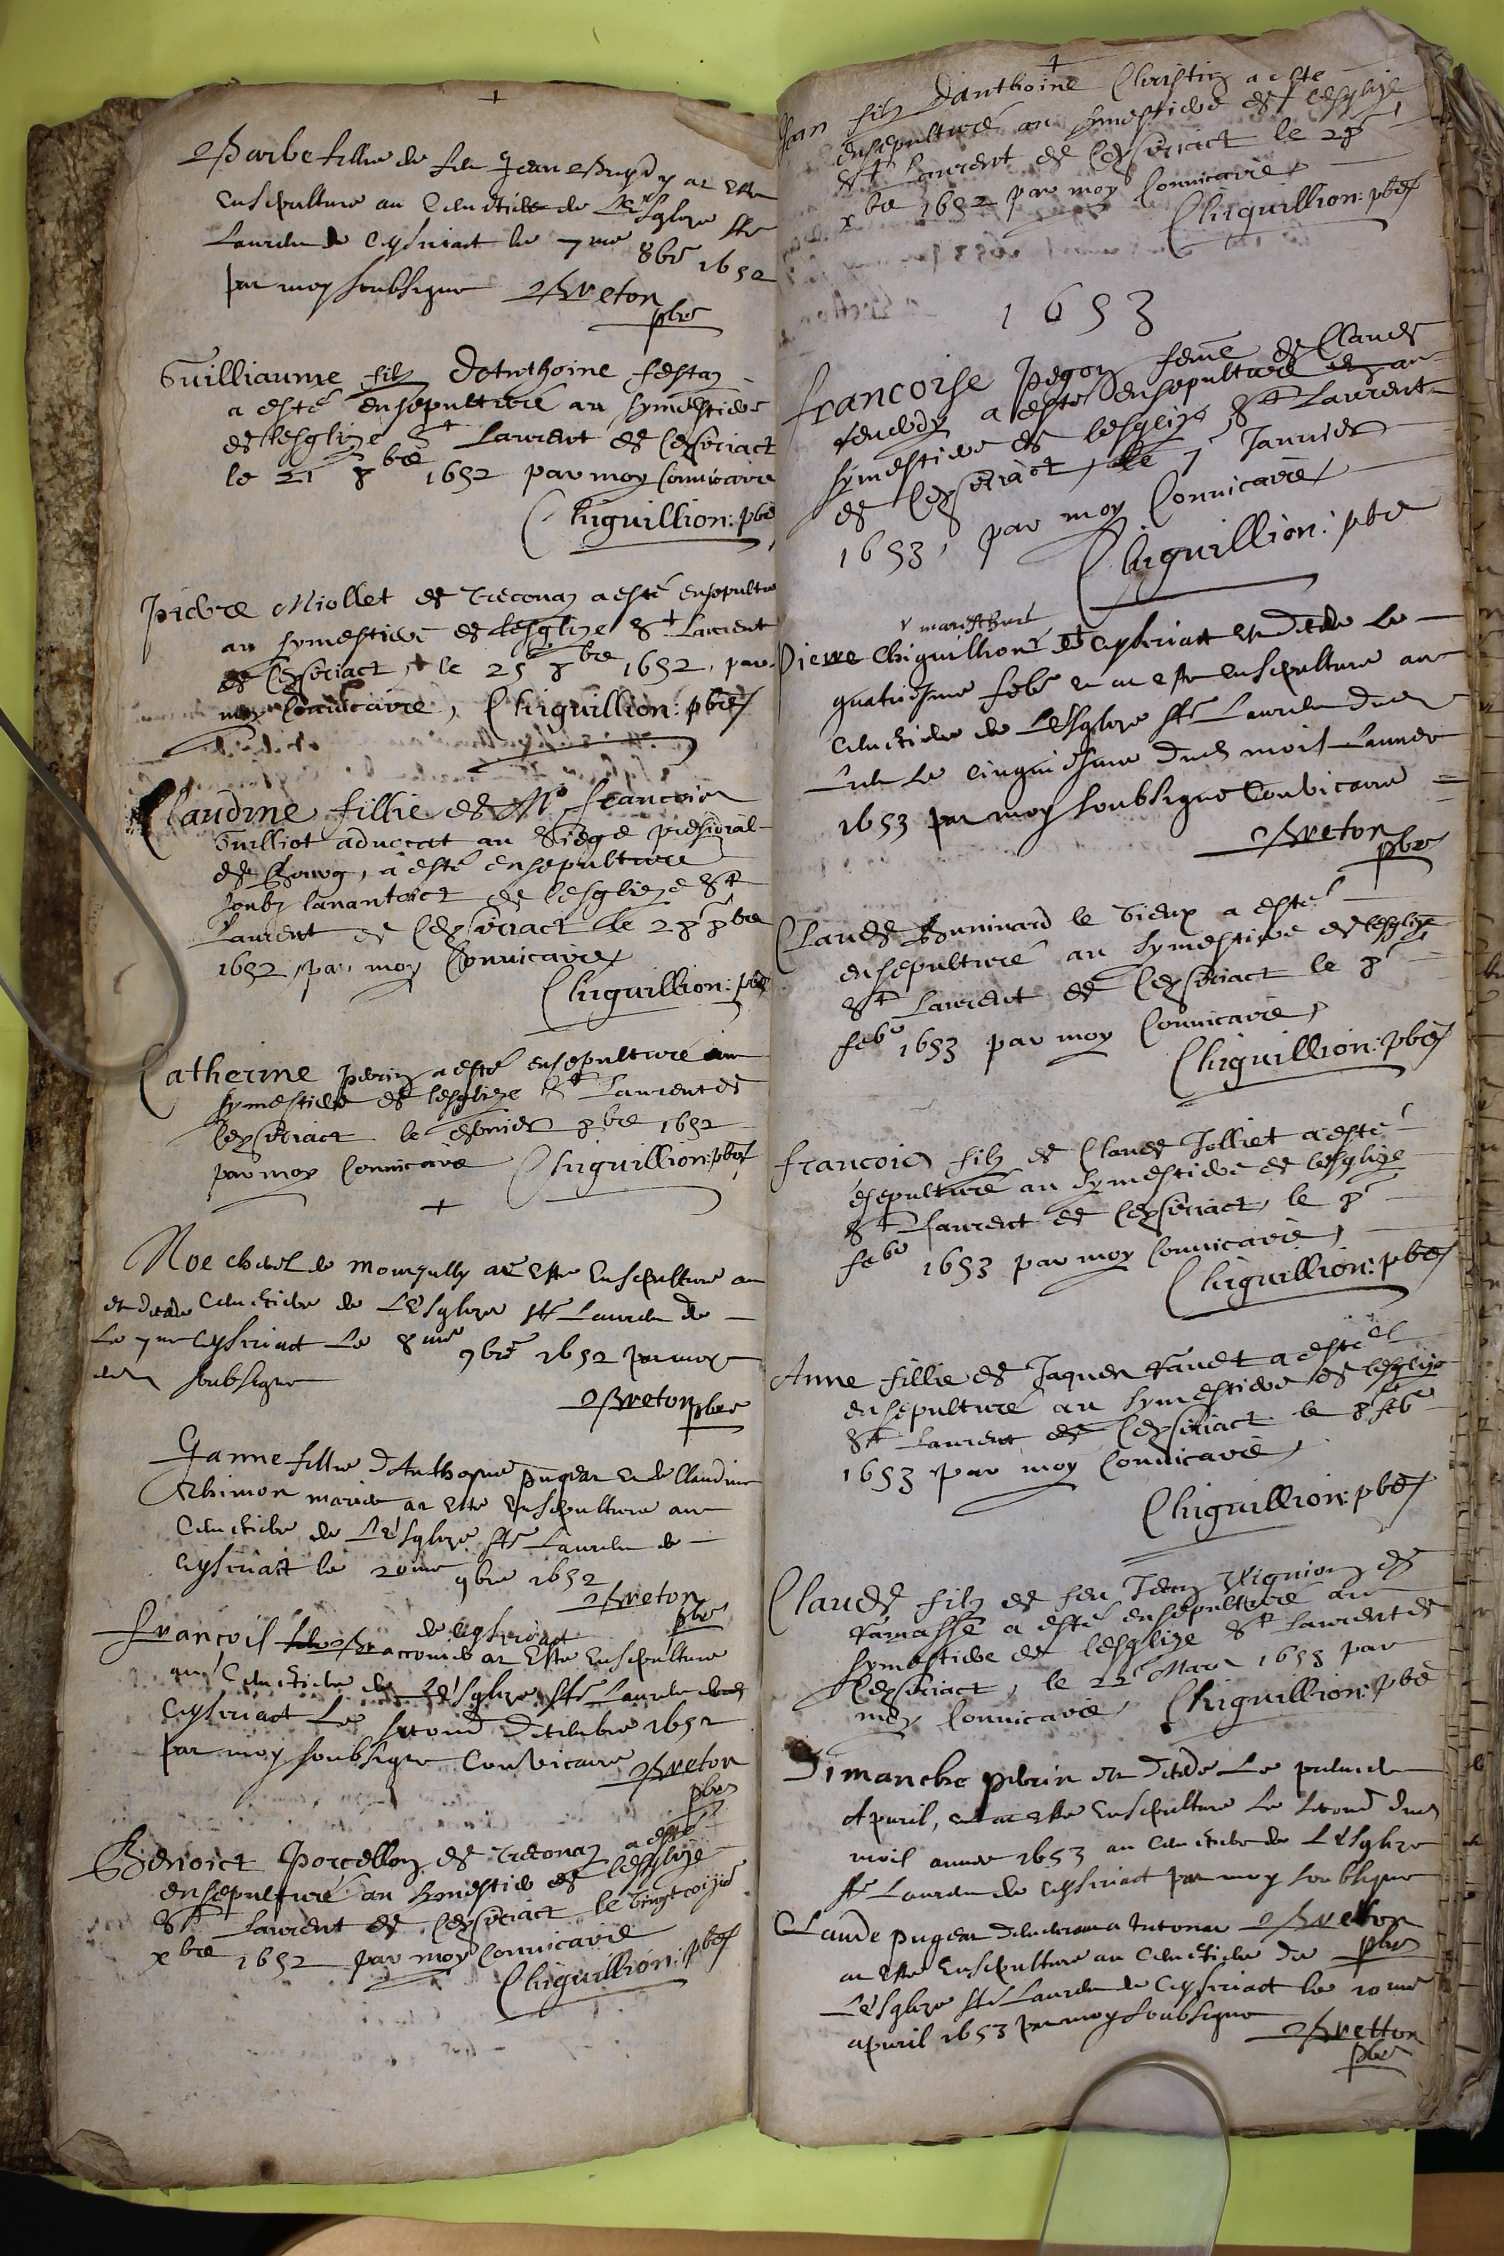 Barbe fillie de feu Jean a este
ensepulture au Cemetiere de Lesglize St
Laurens de Ceyseriact le 7me 8bre 1652
par moy soubsigne Breton
pbre
Guilliaume filz d'Anthoine festaz
a esté ensepulturé au symestiere
de lesglize St Laurent de Ceyseriact
le 21 8bre 1652 par moy Convicaire
Chiguillion: pbre
Pierre Miollet de Treconaz a esté ensepulturé
au symestiere de lesglize St Laurent
de Ceyseriact, le 25 8bre 1652, par
moy Convicaire, Chiguillion: pbre
Claudine fillie de Mr francois
Guilliot advocat au siege presidial
de Bourg, a esté ensepulturé
soubz de lesglize St
Laurent de Ceyseriact le 28 8bre
1652 par moy Convicaire
Chiguillion: pbre
Catherine Perrin a esté ensepulturé au
symestiere de lesglize St Laurent de
Ceyseriact le dernier 8bre 1652
par moy Convicaire Chiguillion: pbre
Noe de a este ensepulture au
et decede Cemetiere de Lesglize St Laurens de
Le 7me Ceyseriact Le 8me 9bre 1652 par moy
soubsigne
Breton pbre
Janne fillie d'Anthoyne pugeat et de Claudine
maries a este ensepulture au
Cemetiere de Lesglize St Laurens de
Ceyseriact le 20me 9bre 1652
Breton
pbre
de Ceyseriact
Francois a este ensepulture
au Cemetiere de Lesglize St Laurens de
Ceyseriact Le second decembre 1652
par moy soubsigne Convicaire Breton
pbre
Benoict Porcellon de Treconaz a esté
ensepulturé au symestiere de lesglize
St Laurent de Ceyseriact le vingt
xbre 1652 par moy Convicaire
Chiguillion: pbre
Jean filz d'anthoine Christin a este
ensepulturé au symestiere de lesglize
St Laurent de Ceyseriact le 28
xbre 1652 par moy Convicaire
Chiguillion: pbre
1653
francoise Pegon feme de Claude
a esté ensepulturé au
symestiere de lesglize St Laurent
de Ceyseriact, le 7 Janvier
1653, par moy Convicaire
Chiguillion: pbre
Pierre Chiguillion de Ceyseriact est decede Le
quatriesme febr et a este ensepulture au
Cemetiere de Lesglize St Laurens dud
Lieu Le cinquiesme dud mois Lannee
1653 par moy soubsigne Convicaire
Breton
pbre
Claude Buninard le vieux a esté
ensepulturé au symestiere de lesglize
St Laurent de Ceyseriact le 8
febr 1653 par moy Convicaire
Chiguillion: pbre
francois filz de Claude Jolliet a esté
ésepulturé au symestiere de lesglize
St Laurent de Ceyseriact, le 8
febr 1653 par moy Convicaire,
Chiguillion: pbre
Anne fillie de Jaques a esté
ensepulturé au symestiere de lesglize
St Laurent de Ceyseriact le 8 febr
1653 par moy Convicaire,
Chiguillion: pbre
Claude filz de feu Jean Vignion de
Ramasse a esté ensepulturé au
symestiere de lesglize St Laurent de
Ceyseriact, le 22 Mars 1653 par
moy Convicaire, Chiguillion: pbre
Dimanche perrin est decede Le premier
Apvril, et a este ensepulture Le second dud
mois annee 1653 au Cemetiere de Lesglize
St Laurens de Ceyseriact par moy soubsigne
Claude pugeat Breton
a este ensepulture au Cemetiere de pbre
Lesglize St Laurens de Ceyseriact le 10me
apvril 1653 par moy soubsigne
Bretton
pbre